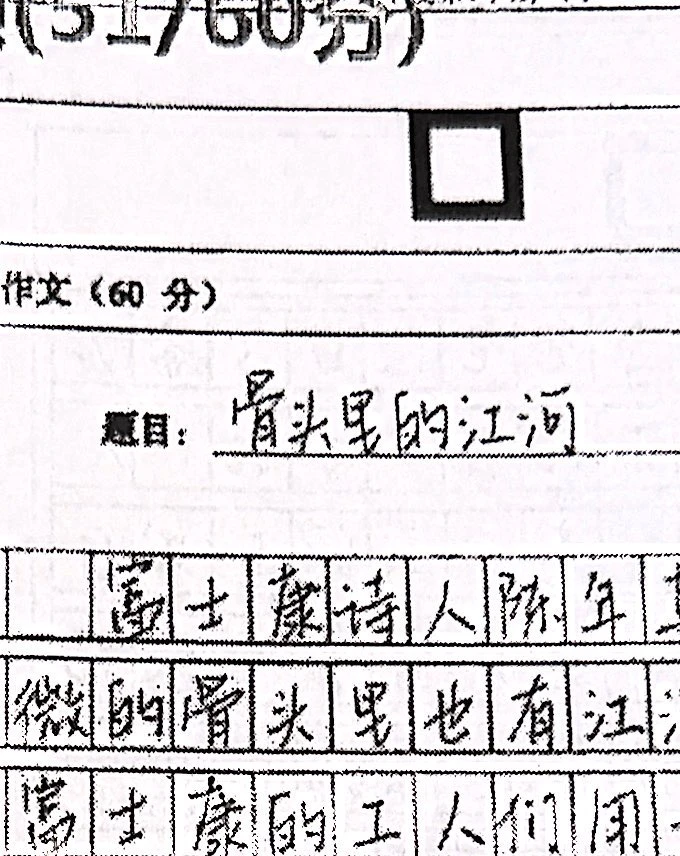 (51/60分)
作文（60 分）
题目：骨头里的江河
富士康诗人陈年
微的骨头里也有江
富士康的工人们用